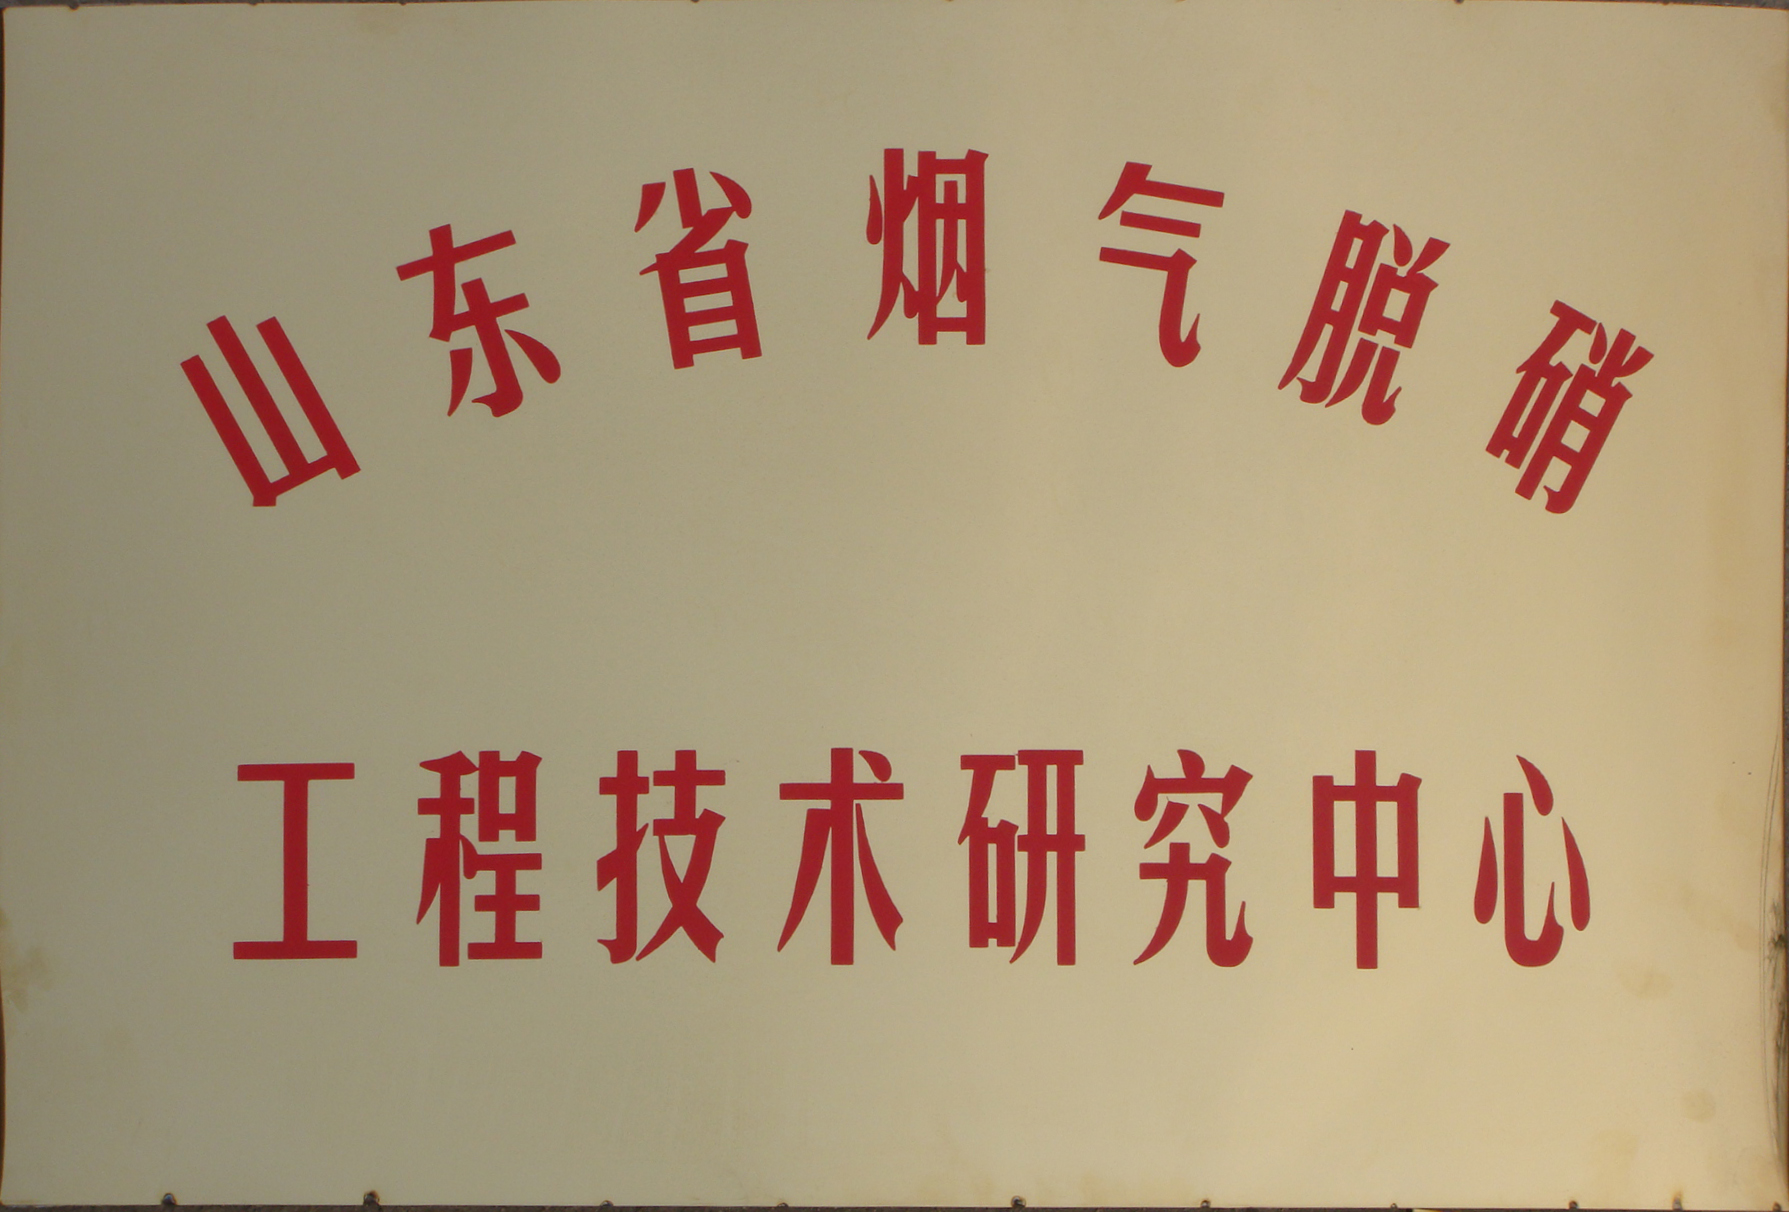 山东省烟气脱硝
工程技术研究中心